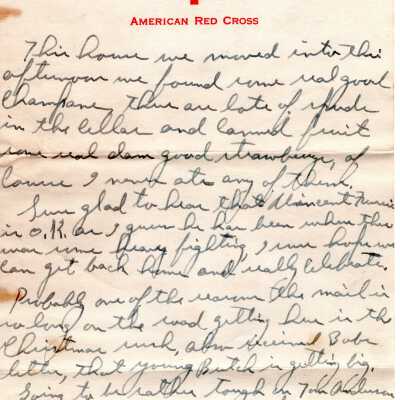 American Red Cross
This house we moved into this
afternoon we found some real good
Champane, there are lots of spuds
in the cellar and canned fruit
some real dam good strawberrys, of
course I never ate any of them.
Sure glad to hear that Vincent
is O.K. as I guess he has been where there
was some heavy fighting, I sure hope we
can get back home and really celebrate.
Probably one of the reasons the mail is
so long on the road getting here is the
Christmas rush, also received Bobs
letter, that young Butch is getting big.
Going to be rather tough on Tom Anderson